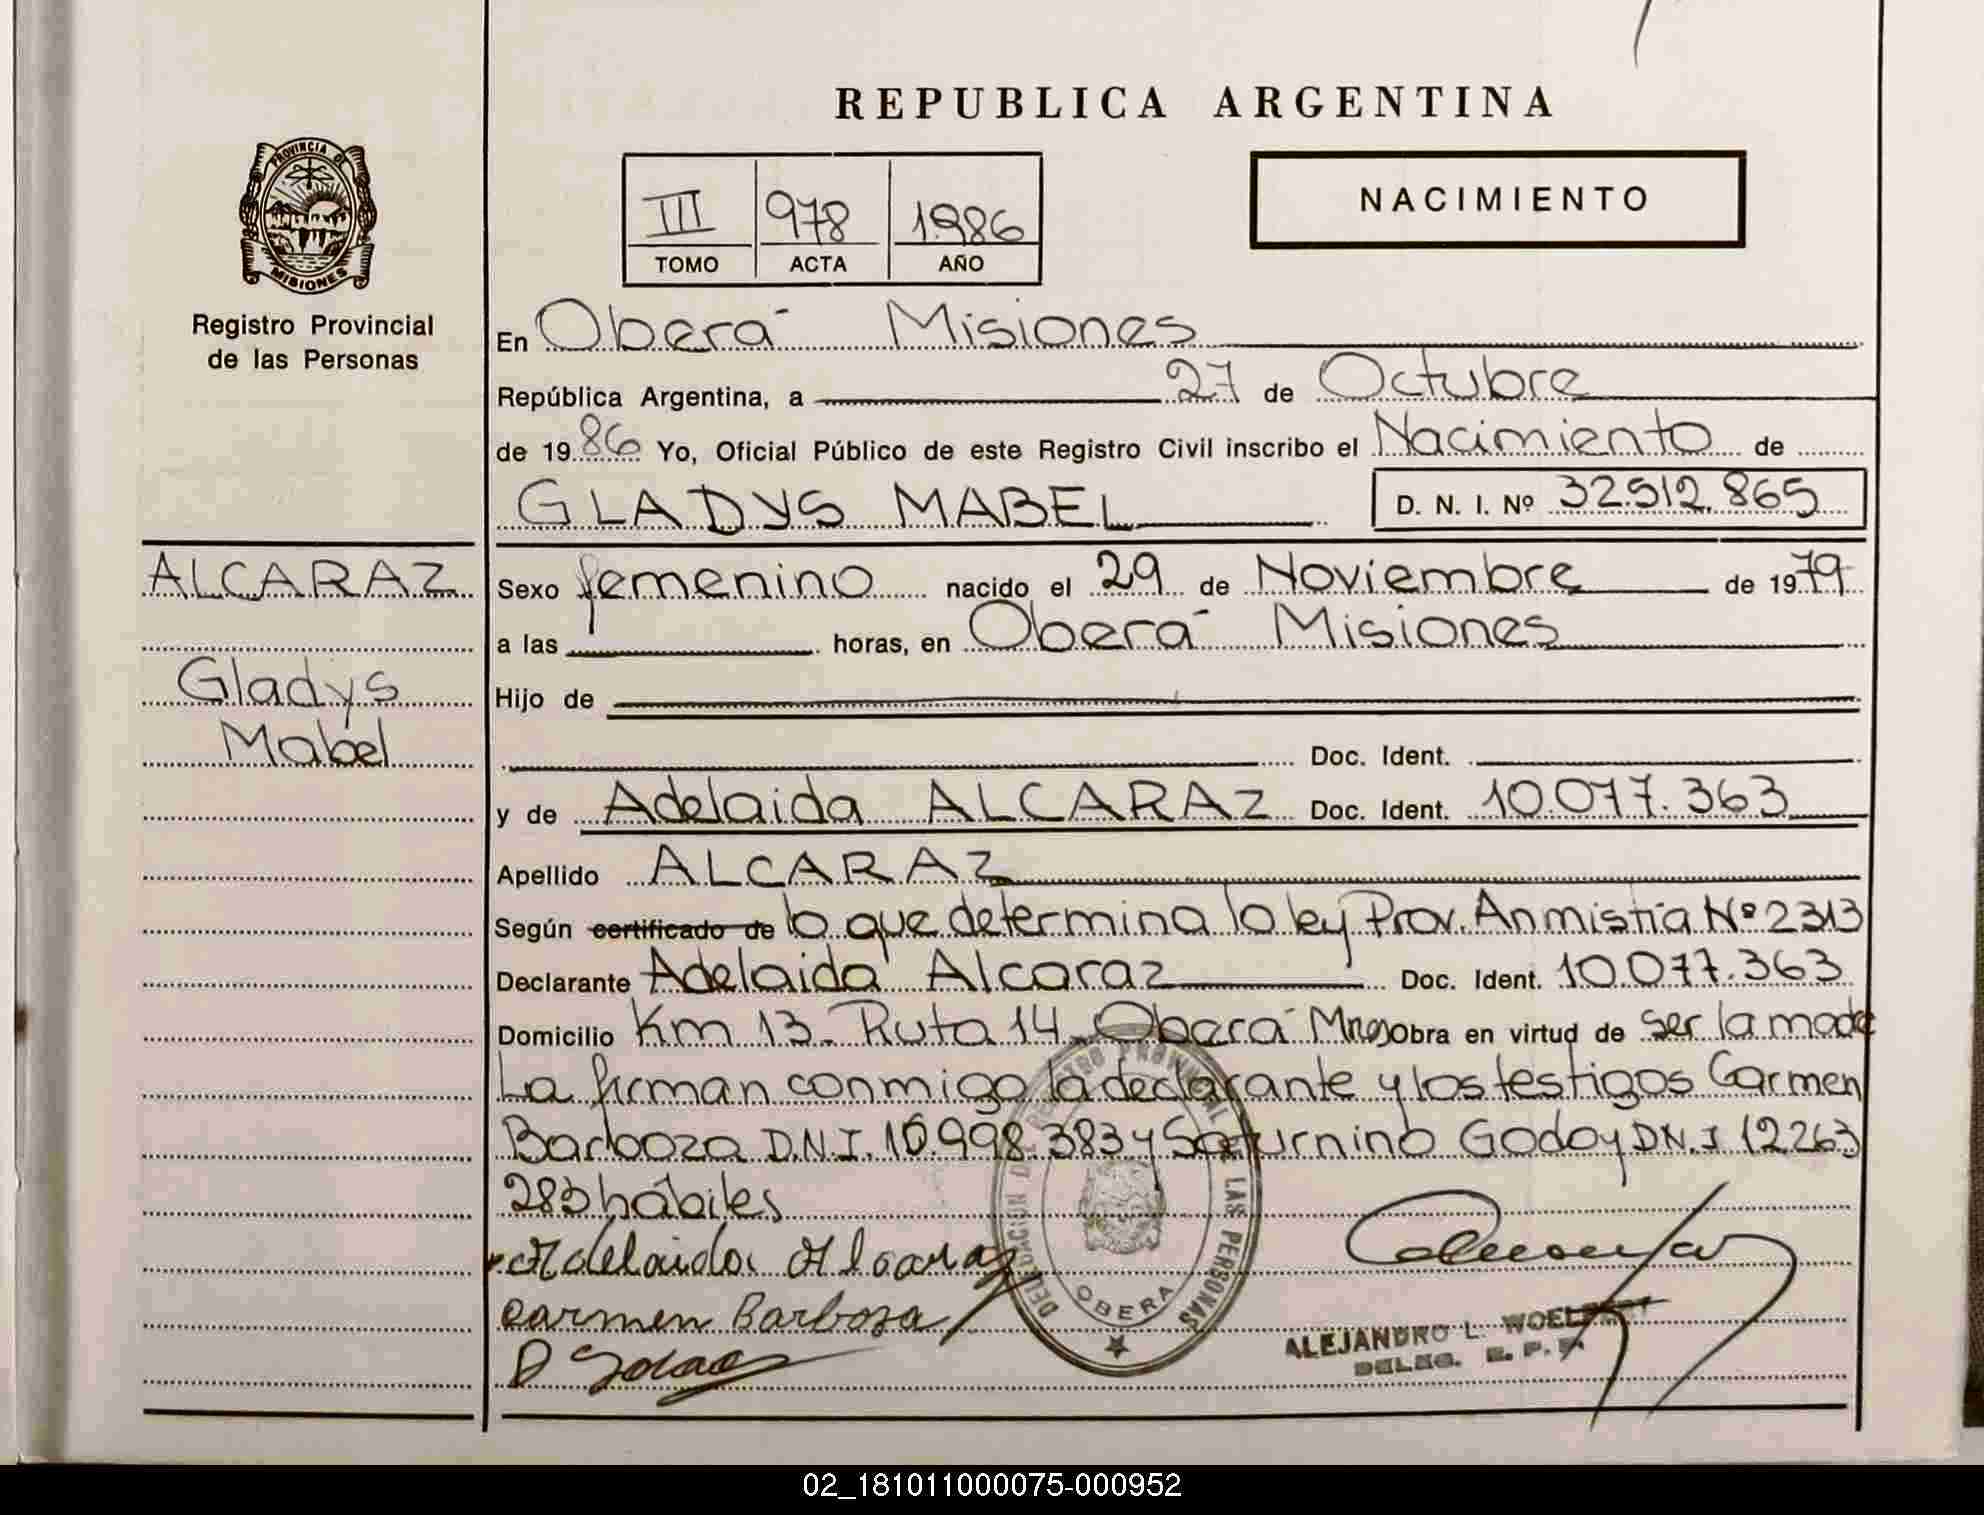 REPUBLICA ARGENTINA
PROVINCIA DE
MISIONES
Registro Provincial
de las Personas
III 978 1986
TOMO ACTA AÑO
NACIMIENTO
En Oberá Misiones
República Argentina, a 27 de Octubre
de 1986 Yo, Oficial Público de este Registro Civil inscribo el Nacimiento de
GLADYS MABEL D. N. I. Nº 32.512.865
ALCARAZ
Gladys
Mabel
Sexo femenino nacido el 29 de Noviembre de 1979
a las horas, en Oberá Misiones
Hijo de
Doc. Ident.
y de Adelaida ALCARAZ Doc. Ident. 10.077.363
Apellido ALCARAZ
Según certificado de lo que determina la ley Prov. Anmistia Nº 2313
Declarante Adelaida Alcaraz Doc. Ident. 10.077.363
Domicilio Km 13 - Ruta 14 - Oberá Mnes Obra en virtud de ser la madre
La firman conmigo la declarante y los testigos Carmen
Barboza D.N.I. 10.998.383 y Saturnino Godoy D.N.I 12263
283 hábiles
Adelaida Alcaraz
Carmen Barboza
DELEGACION DEL REGISTRO PROVINCIAL DE LAS PERSONAS
OBERA
ALEJANDRO L.
DELEG. R. P. P.
02_181011000075-000952